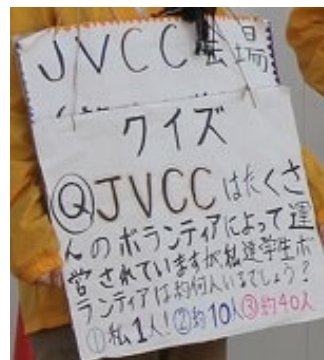 JVCC会場
クイズ
Ⓠ JVCCはたくさ
んのボランティアによって運
営されていますが私達学生ボ
ランティアは約何人いるでしょう?
①私1人!②約10人③約40人